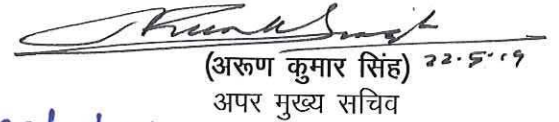 (अरूण कुमार सिंह) 22.5.19
अपर मुख्य सचिव